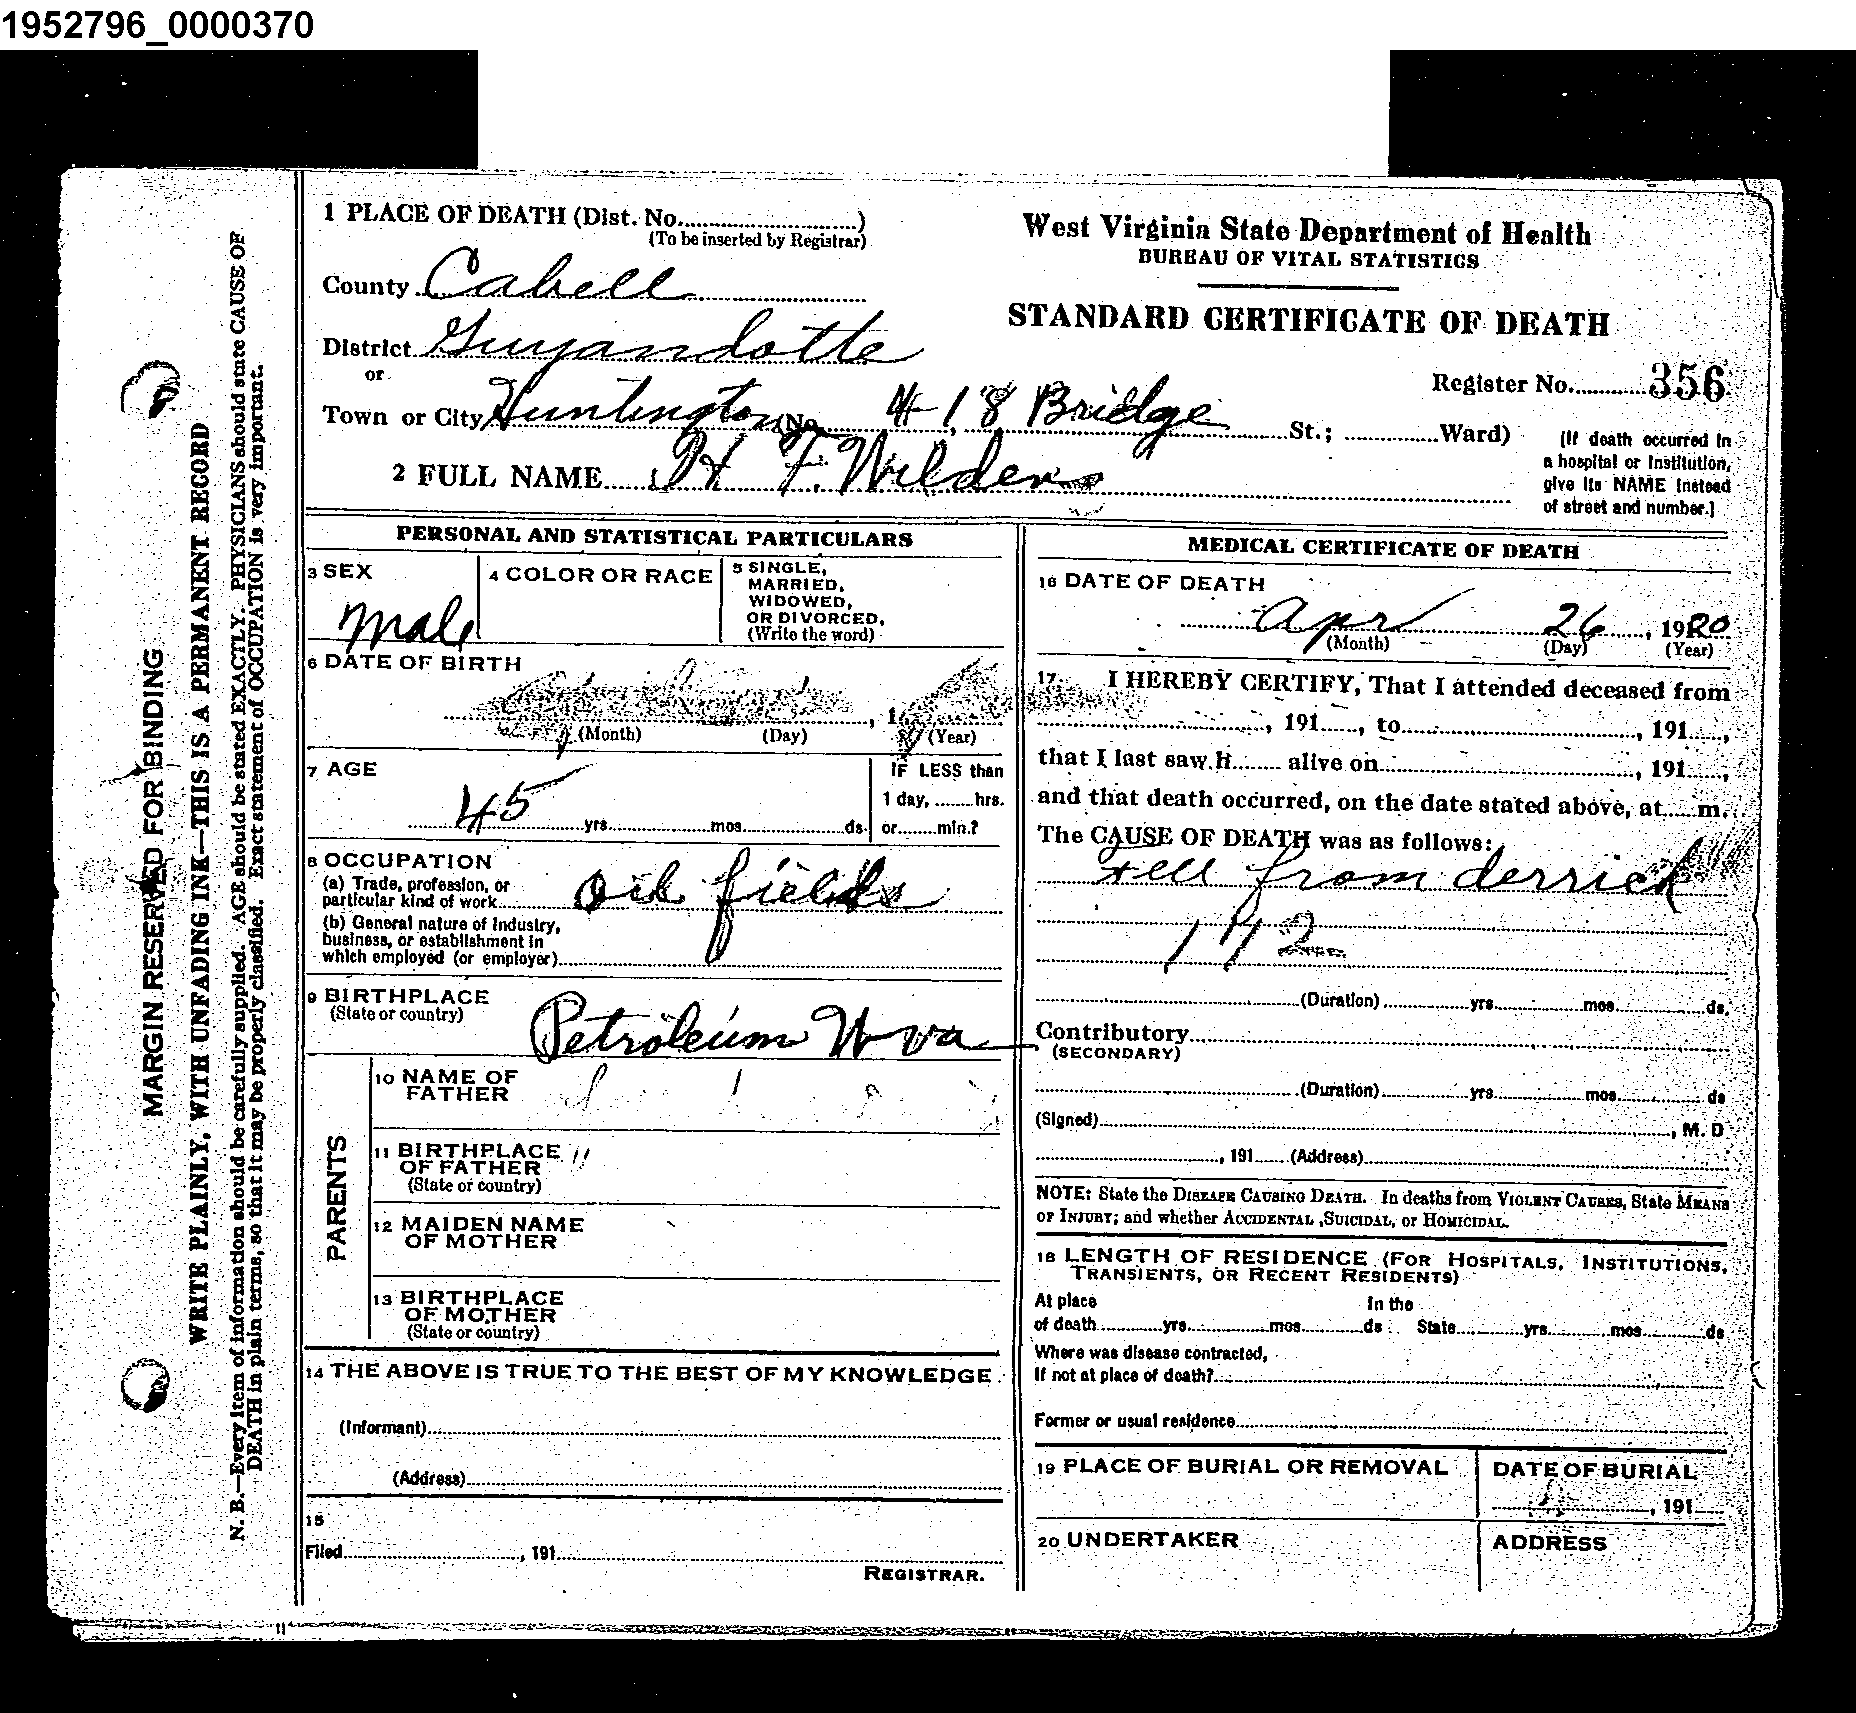 1952796_0000370
1 PLACE OF DEATH (Dist. No..............................)
(To be inserted by Registrar)
County Cabell
District Guyandotte
or
Town or City Huntington (No. 418 Bridge St.; ..............Ward)
2 FULL NAME H F. Wilder
West Virginia State Department of Health
BUREAU OF VITAL STATISTICS
STANDARD CERTIFICATE OF DEATH
Register No. 356
[If death occurred in
a hospital or institution,
give its NAME instead
of street and number.]
PERSONAL AND STATISTICAL PARTICULARS
3 SEX
Male
4 COLOR OR RACE
5 SINGLE,
MARRIED,
WIDOWED,
OR DIVORCED,
(Write the word)
6 DATE OF BIRTH
, 1
(Month) (Day) (Year)
7 AGE
45 yrs. mos. ds.
IF LESS than
1 day, ........hrs.
or........min.?
8 OCCUPATION
(a) Trade, profession, or
particular kind of work Oil fields
(b) General nature of Industry,
business, or establishment in
which employed (or employer)
9 BIRTHPLACE
(State or country)
Petroleum W va
PARENTS
10 NAME OF
FATHER
11 BIRTHPLACE
OF FATHER
(State or country)
12 MAIDEN NAME
OF MOTHER
13 BIRTHPLACE
OF MOTHER
(State or country)
14 THE ABOVE IS TRUE TO THE BEST OF MY KNOWLEDGE
(Informant)
(Address)
15
Filed , 191
REGISTRAR.
MEDICAL CERTIFICATE OF DEATH
16 DATE OF DEATH
Apr 26 , 1920
(Month) (Day) (Year)
17 I HEREBY CERTIFY, That I attended deceased from
, 191....., to , 191.....,
that I last saw h........ alive on , 191.....,
and that death occurred, on the date stated above, at.....m.
The CAUSE OF DEATH was as follows:
Fell from derrick
172
(Duration) yrs. mos. ds.
Contributory
(SECONDARY)
(Duration) yrs. mos. ds
(Signed) , M. D
, 191...... (Address)
NOTE: State the DISEASE CAUSING DEATH. In deaths from VIOLENT CAUSES, State MEANS
OF INJURY; and whether ACCIDENTAL, SUICIDAL, or HOMICIDAL.
18 LENGTH OF RESIDENCE (FOR HOSPITALS, INSTITUTIONS,
TRANSIENTS, OR RECENT RESIDENTS)
At place In the
of death yrs. mos. ds. State yrs. mos. ds
Where was disease contracted,
If not at place of death?
Former or usual residence
19 PLACE OF BURIAL OR REMOVAL
DATE OF BURIAL
, 191
20 UNDERTAKER
ADDRESS
MARGIN RESERVED FOR BINDING
WRITE PLAINLY, WITH UNFADING INK—THIS IS A PERMANENT RECORD
N. B.—Every item of information should be carefully supplied. AGE should be stated EXACTLY. PHYSICIANS should state CAUSE OF
DEATH in plain terms, so that it may be properly classified. Exact statement of OCCUPATION is very important.